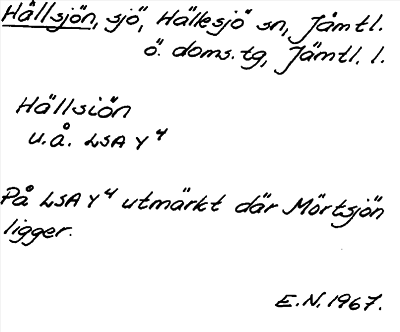 Hällsjön, sjö, Hällesjö sn, Jämtl.
ö. doms.tg, Jämtl. l.
Hällsiön
u.å. LSA Y 4
På LSA Y 4 utmärkt där Mörtsjön
ligger.
E.N. 1967.